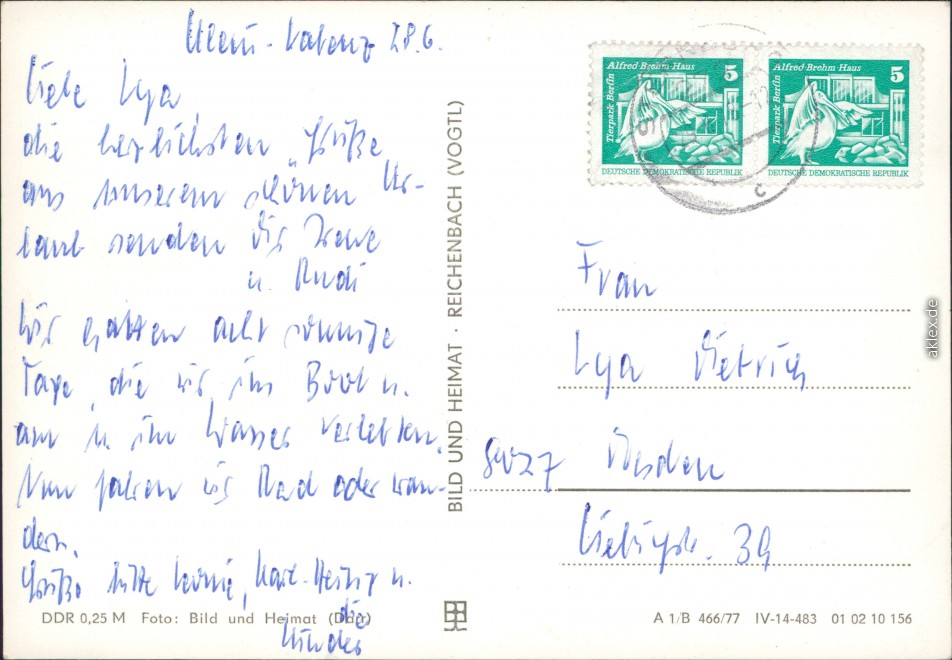 Klein-Labenz 28.6.
Liebe Lya
die herzlichsten Grüße
aus unserem schönen Ur-
laub senden Dir Irene
u. Rudi
Wir hatten acht sonnige
Tage, die wir im Boot u.
am u. im Wasser verlebten.
Nun fahren wir Rad oder wan-
dern.
Grüße bitte Karl-Heinz u.
die
Kinder
DDR 0,25 M Foto: Bild und Heimat (Darr)
BILD UND HEIMAT · REICHENBACH (VOGTL)
Alfred-Brehm-Haus 5
Tierpark Berlin
DEUTSCHE DEMOKRATISCHE REPUBLIK
Alfred-Brehm-Haus 5
Tierpark Berlin
DEUTSCHE DEMOKRATISCHE REPUBLIK
c
Frau
Lya Dietrich
8027 Dresden
Liebigstr. 39
A 1/B 466/77 IV-14-483 01 02 10 156
aklex.de